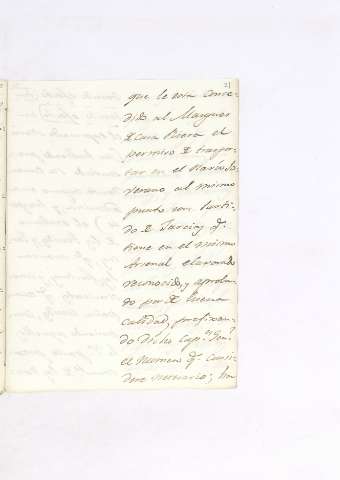 21
que le esta conce-
dido al Marques
de Casa Riera el
permiso de traspor-
tar en el Navio So-
verano al mismo
punto un surti-
do de Jarcia q.e
tiene en el mismo
Arsenal elavorado
reconocido, y aproba-
do por de buena
calidad, prefixan-
do dicho Cap.n Gen.l
el Numero q.e consi-
dere necesario;